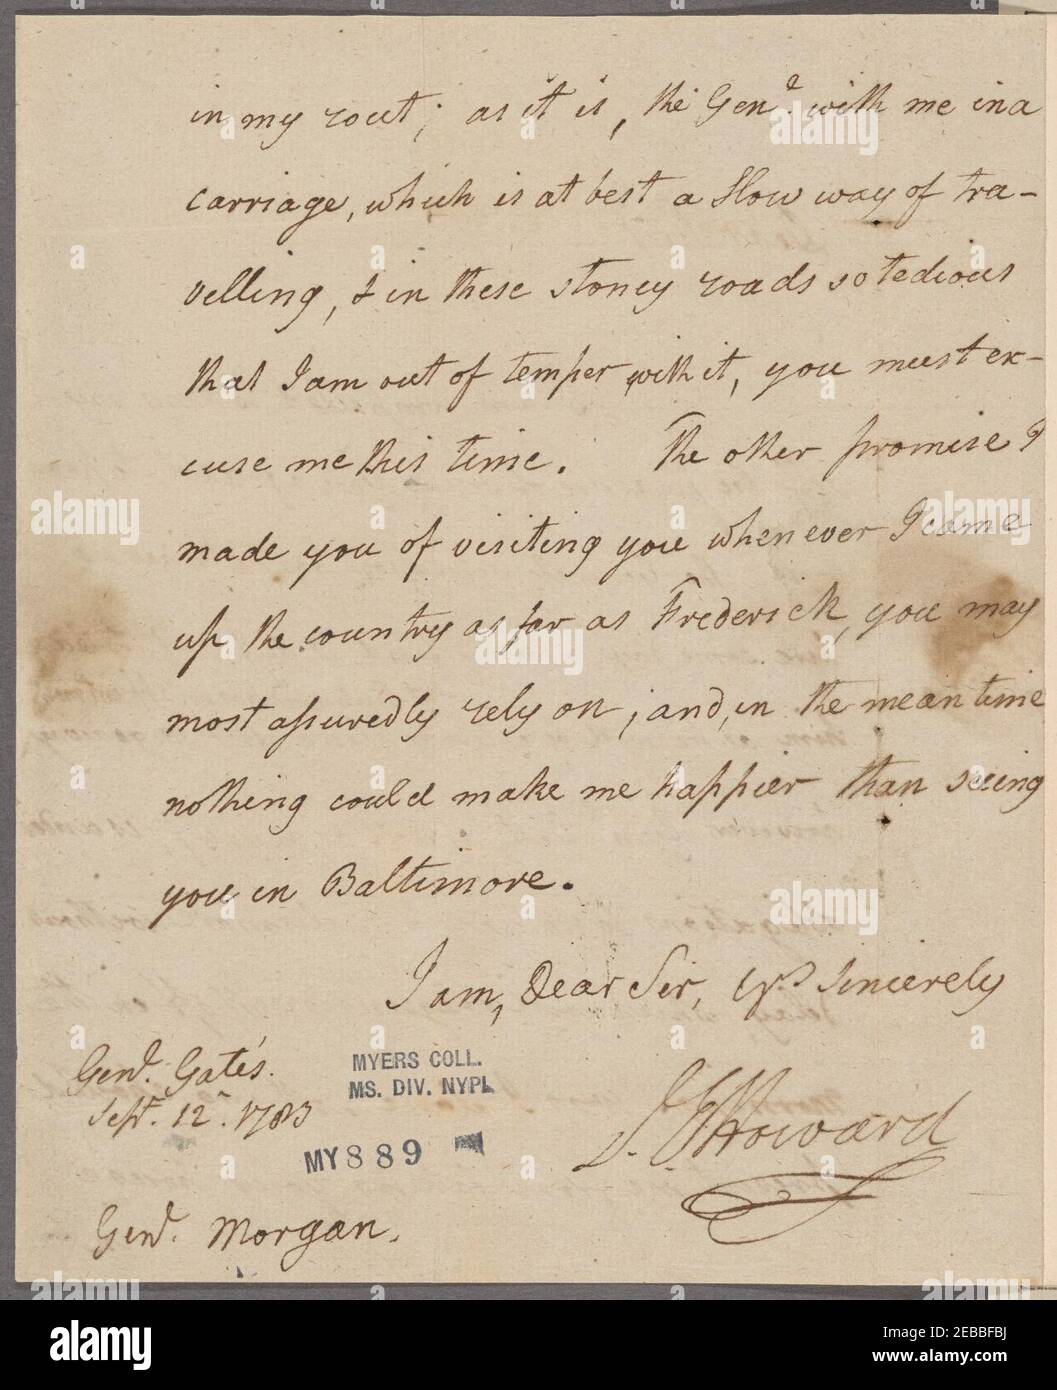 in my rout; as it is, the Genl. with me in a
carriage, which is at best a Slow way of tra-
velling, & in these stoney roads so tedious
that I am out of temper with it, you must ex-
cuse me this time. The other promise I
made you of visiting you whenever I came
up the country as far as Frederick, you may
most assuredly rely on; and, in the mean time
nothing could make me happier than seeing
you in Baltimore.
I am, Dear Sir, Yrs sincerely
J. E. Howard
Genl. Gates's.
Septr. 12th. 1783
MYERS COLL.
MS. DIV. NYPL
MY 889
Genl. Morgan.
alamy
Image ID: 2EBBFBJ
www.alamy.com